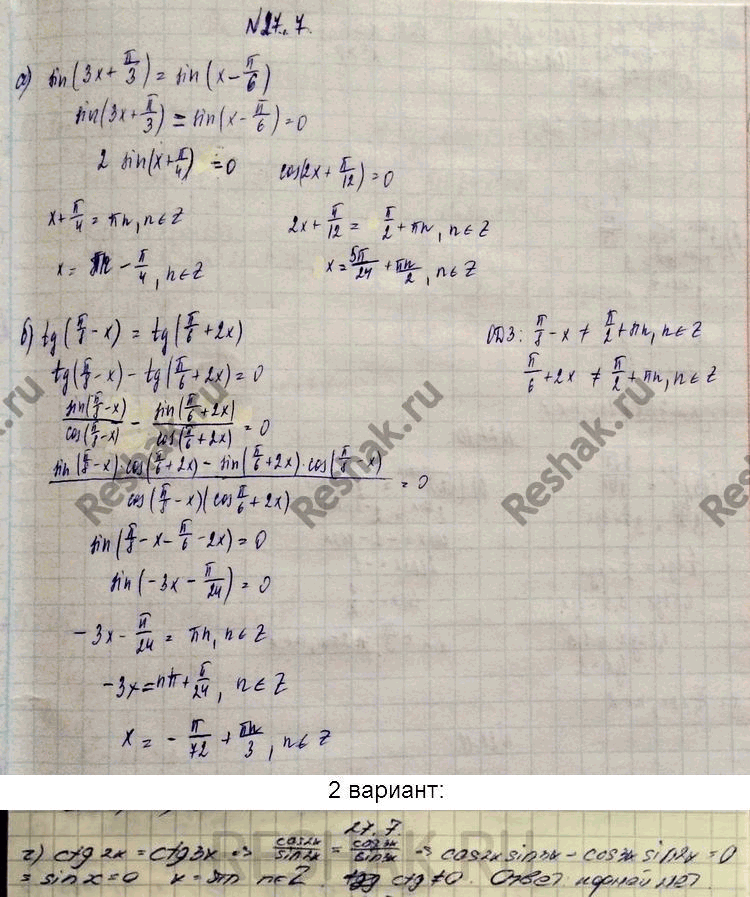 №27.7.
а) sin(3x+π/3) = sin(x-π/6)
sin(3x+π/3) = sin(x-π/6)=0
2 sin(x+π/4) =0 cos(2x+π/12)=0
x+π/4 = πn, n∈Z 2x+π/12 = π/2+πn, n∈Z
x= πn - π/4, n∈Z x=5π/24+πn/2, n∈Z
б) tg(π/8-x) = tg(π/6+2x) ОДЗ: π/8-x ≠ π/2+πn, n∈Z
tg(π/8-x) - tg(π/6+2x)=0 π/6+2x ≠ π/2+πn, n∈Z
sin(π/8-x)/cos(π/8-x) - sin(π/6+2x)/cos(π/6+2x) =0
sin(π/8-x)·cos(π/6+2x) - sin(π/6+2x)·cos(π/8-x)/cos(π/8-x)(cosπ/6+2x) = 0
sin(π/8-x-π/6-2x)=0
sin(-3x-π/24)=0
-3x-π/24 = πn, n∈Z
-3x=πn+π/24, n∈Z
x= -π/72+πn/3, n∈Z
Reshak.ru
Reshak.ru
Reshak.ru
2 вариант:
27.7.
г) ctg2x=ctg3x => cos2x/sin2x = cos3x/sin3x => cos2x sin3x - cos3x sin2x =0
= sinx=0 x=πn n∈Z. ctg≠0. Ответ: корней нет.
RESHAK.RU